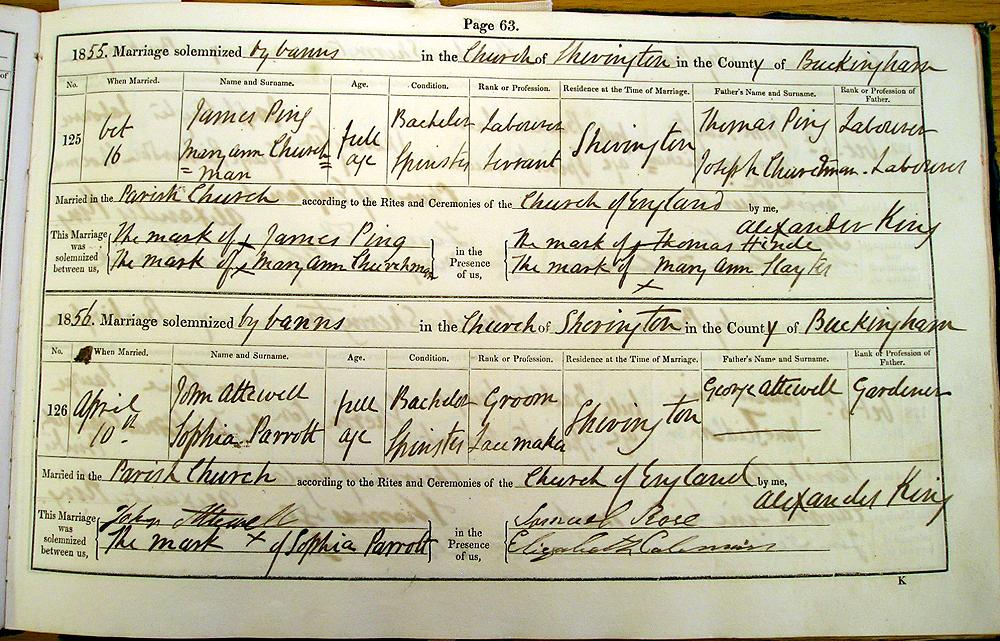 Page 63.
1855. Marriage solemnized by banns in the Church of Sherington in the County of Buckingham
No. When Married. Name and Surname. Age. Condition. Rank or Profession. Residence at the Time of Marriage. Father's Name and Surname. Rank or Profession of Father.
125 Oct 16 James Ping full age Bachelor Labourer Sherington Thomas Ping Labourer
Mary Ann Church= =man Spinster Servant Joseph Churchman. Labourer
Married in the Parish Church according to the Rites and Ceremonies of the Church of England by me,
Alexander King
This Marriage was solemnized between us, The mark of x James Ping in the Presence of us, The mark of x Thomas Hinde
The mark of x Mary Ann Churchman The mark of x Mary Ann Slayter
1856. Marriage solemnized by banns in the Church of Sherington in the County of Buckingham
No. When Married. Name and Surname. Age. Condition. Rank or Profession. Residence at the Time of Marriage. Father's Name and Surname. Rank or Profession of Father.
126 April 10th John Attewell full age Bachelor Groom Sherington George Attewell Gardener
Sophia Parrott Spinster Lacemaker
Married in the Parish Church according to the Rites and Ceremonies of the Church of England by me,
Alexander King
This Marriage was solemnized between us, John Attewell in the Presence of us, Samuel Rose
The mark x of Sophia Parrott Elizabeth
K